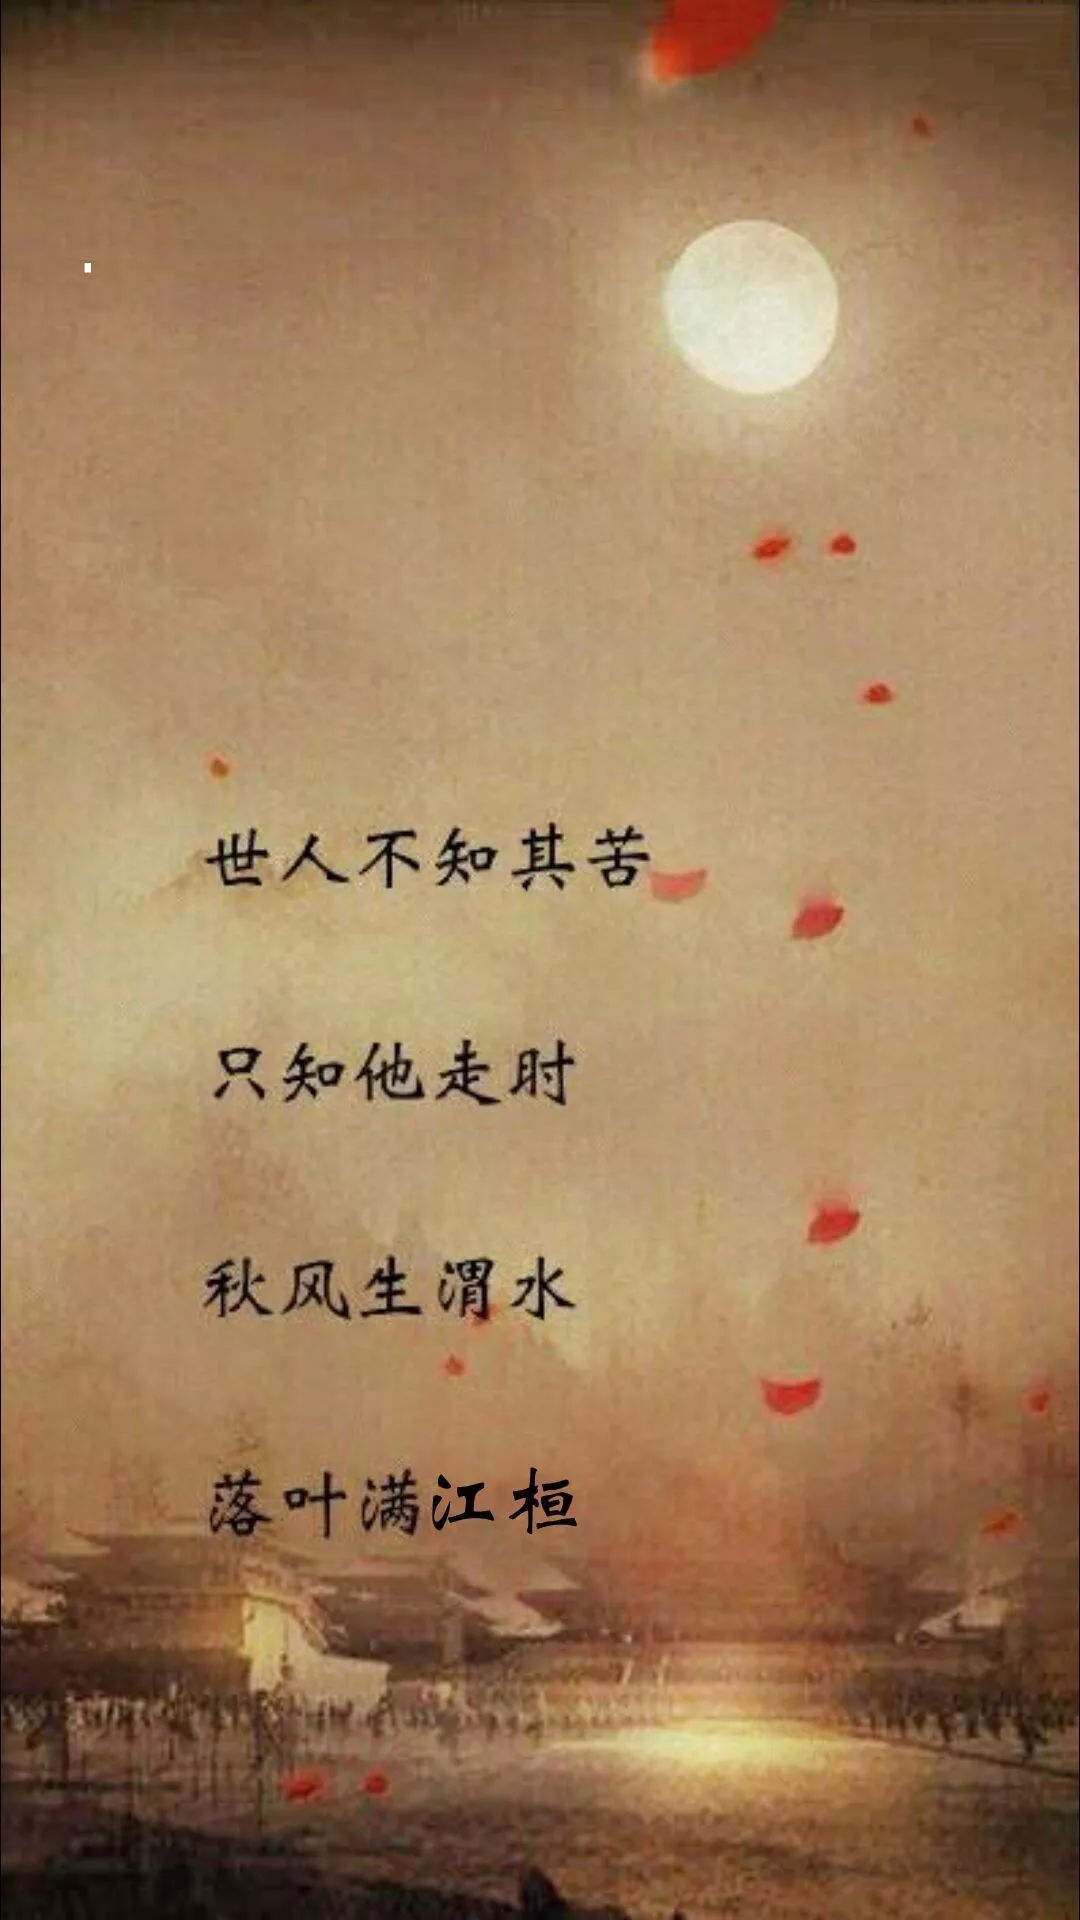 世人不知其苦
只知他走时
秋风生渭水
落叶满江桓